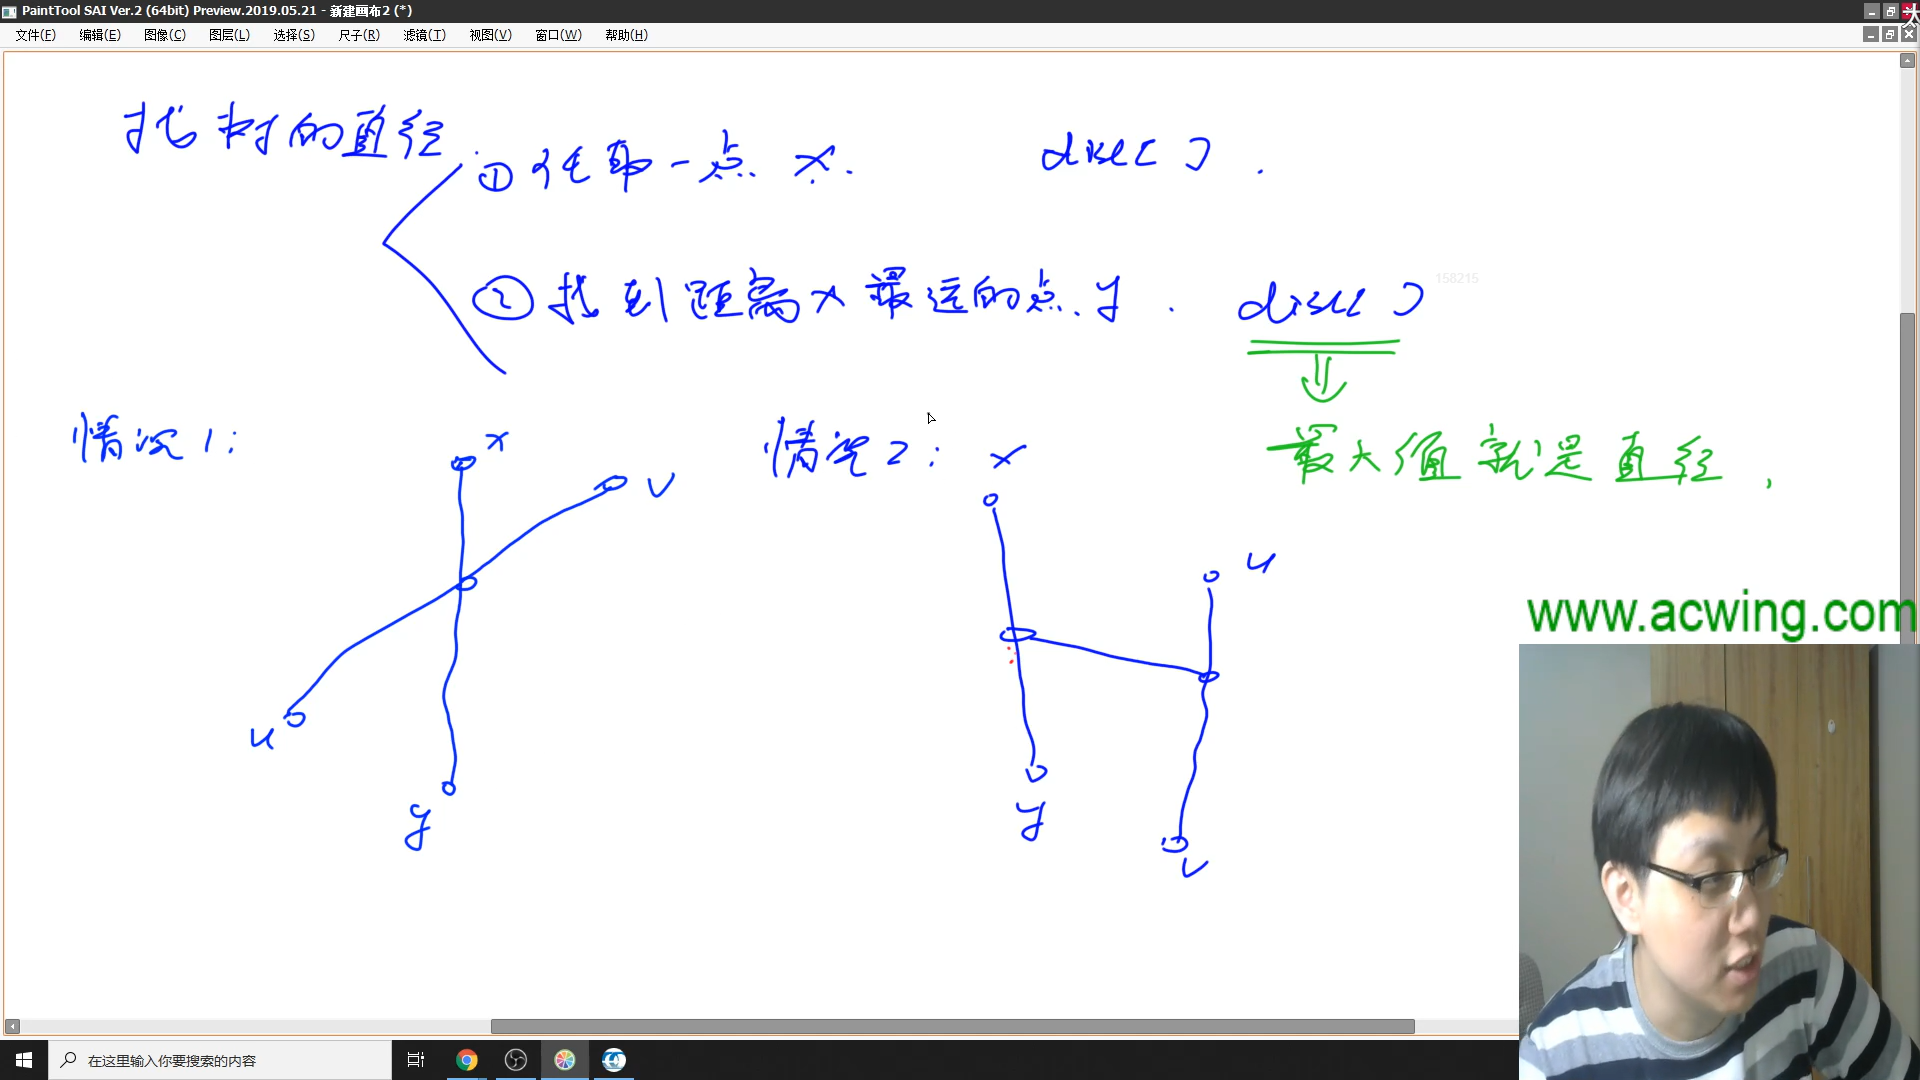 PaintTool SAI Ver.2 (64bit) Preview.2019.05.21 - 新建画布2 (*)
文件(F) 编辑(E) 图像(C) 图层(L) 选择(S) 尺子(R) 滤镜(T) 视图(V) 窗口(W) 帮助(H)
找树的直径
① 任取一点 x. dist[ ] .
② 找到距离x最远的点y . dist[ ]
158215
最大值就是直径.
情况1: x v u y
情况2: x u y v
www.acwing.com
在这里输入你要搜索的内容